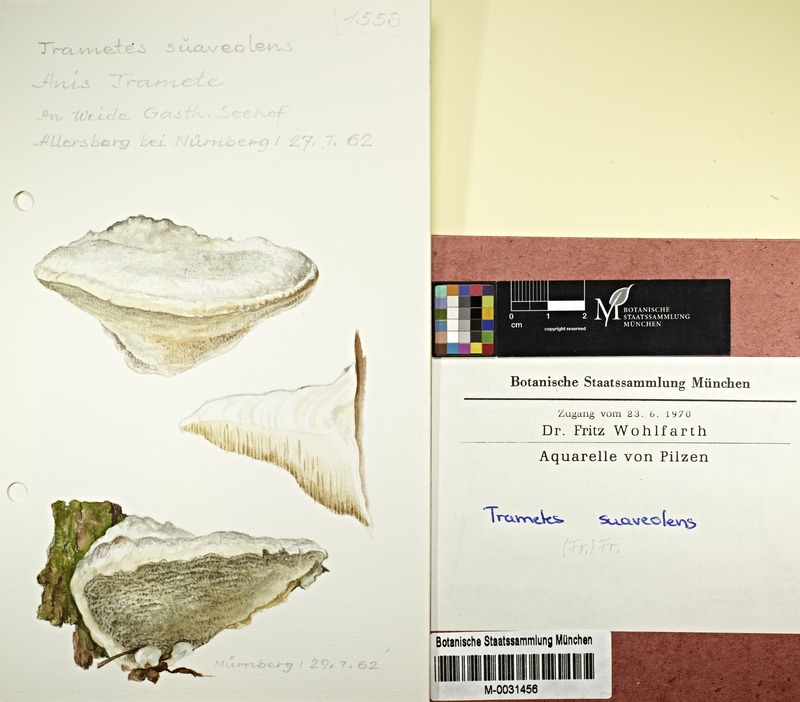 1558
Trametes suaveolens
Anis Tramete
An Weide Gasth. Seehof
Allersberg bei Nürnberg / 27. 7. 62
Nürnberg / 29. 7. 62
0 1 2
cm
copyright reserved
M BOTANISCHE
STAATSSAMMLUNG
MÜNCHEN
Botanische Staatssammlung München
Zugang vom 23. 6. 1970
Dr. Fritz Wohlfarth
Aquarelle von Pilzen
Trametes suaveolens
(Fr.) Fr.
Botanische Staatssammlung München
M-0031456